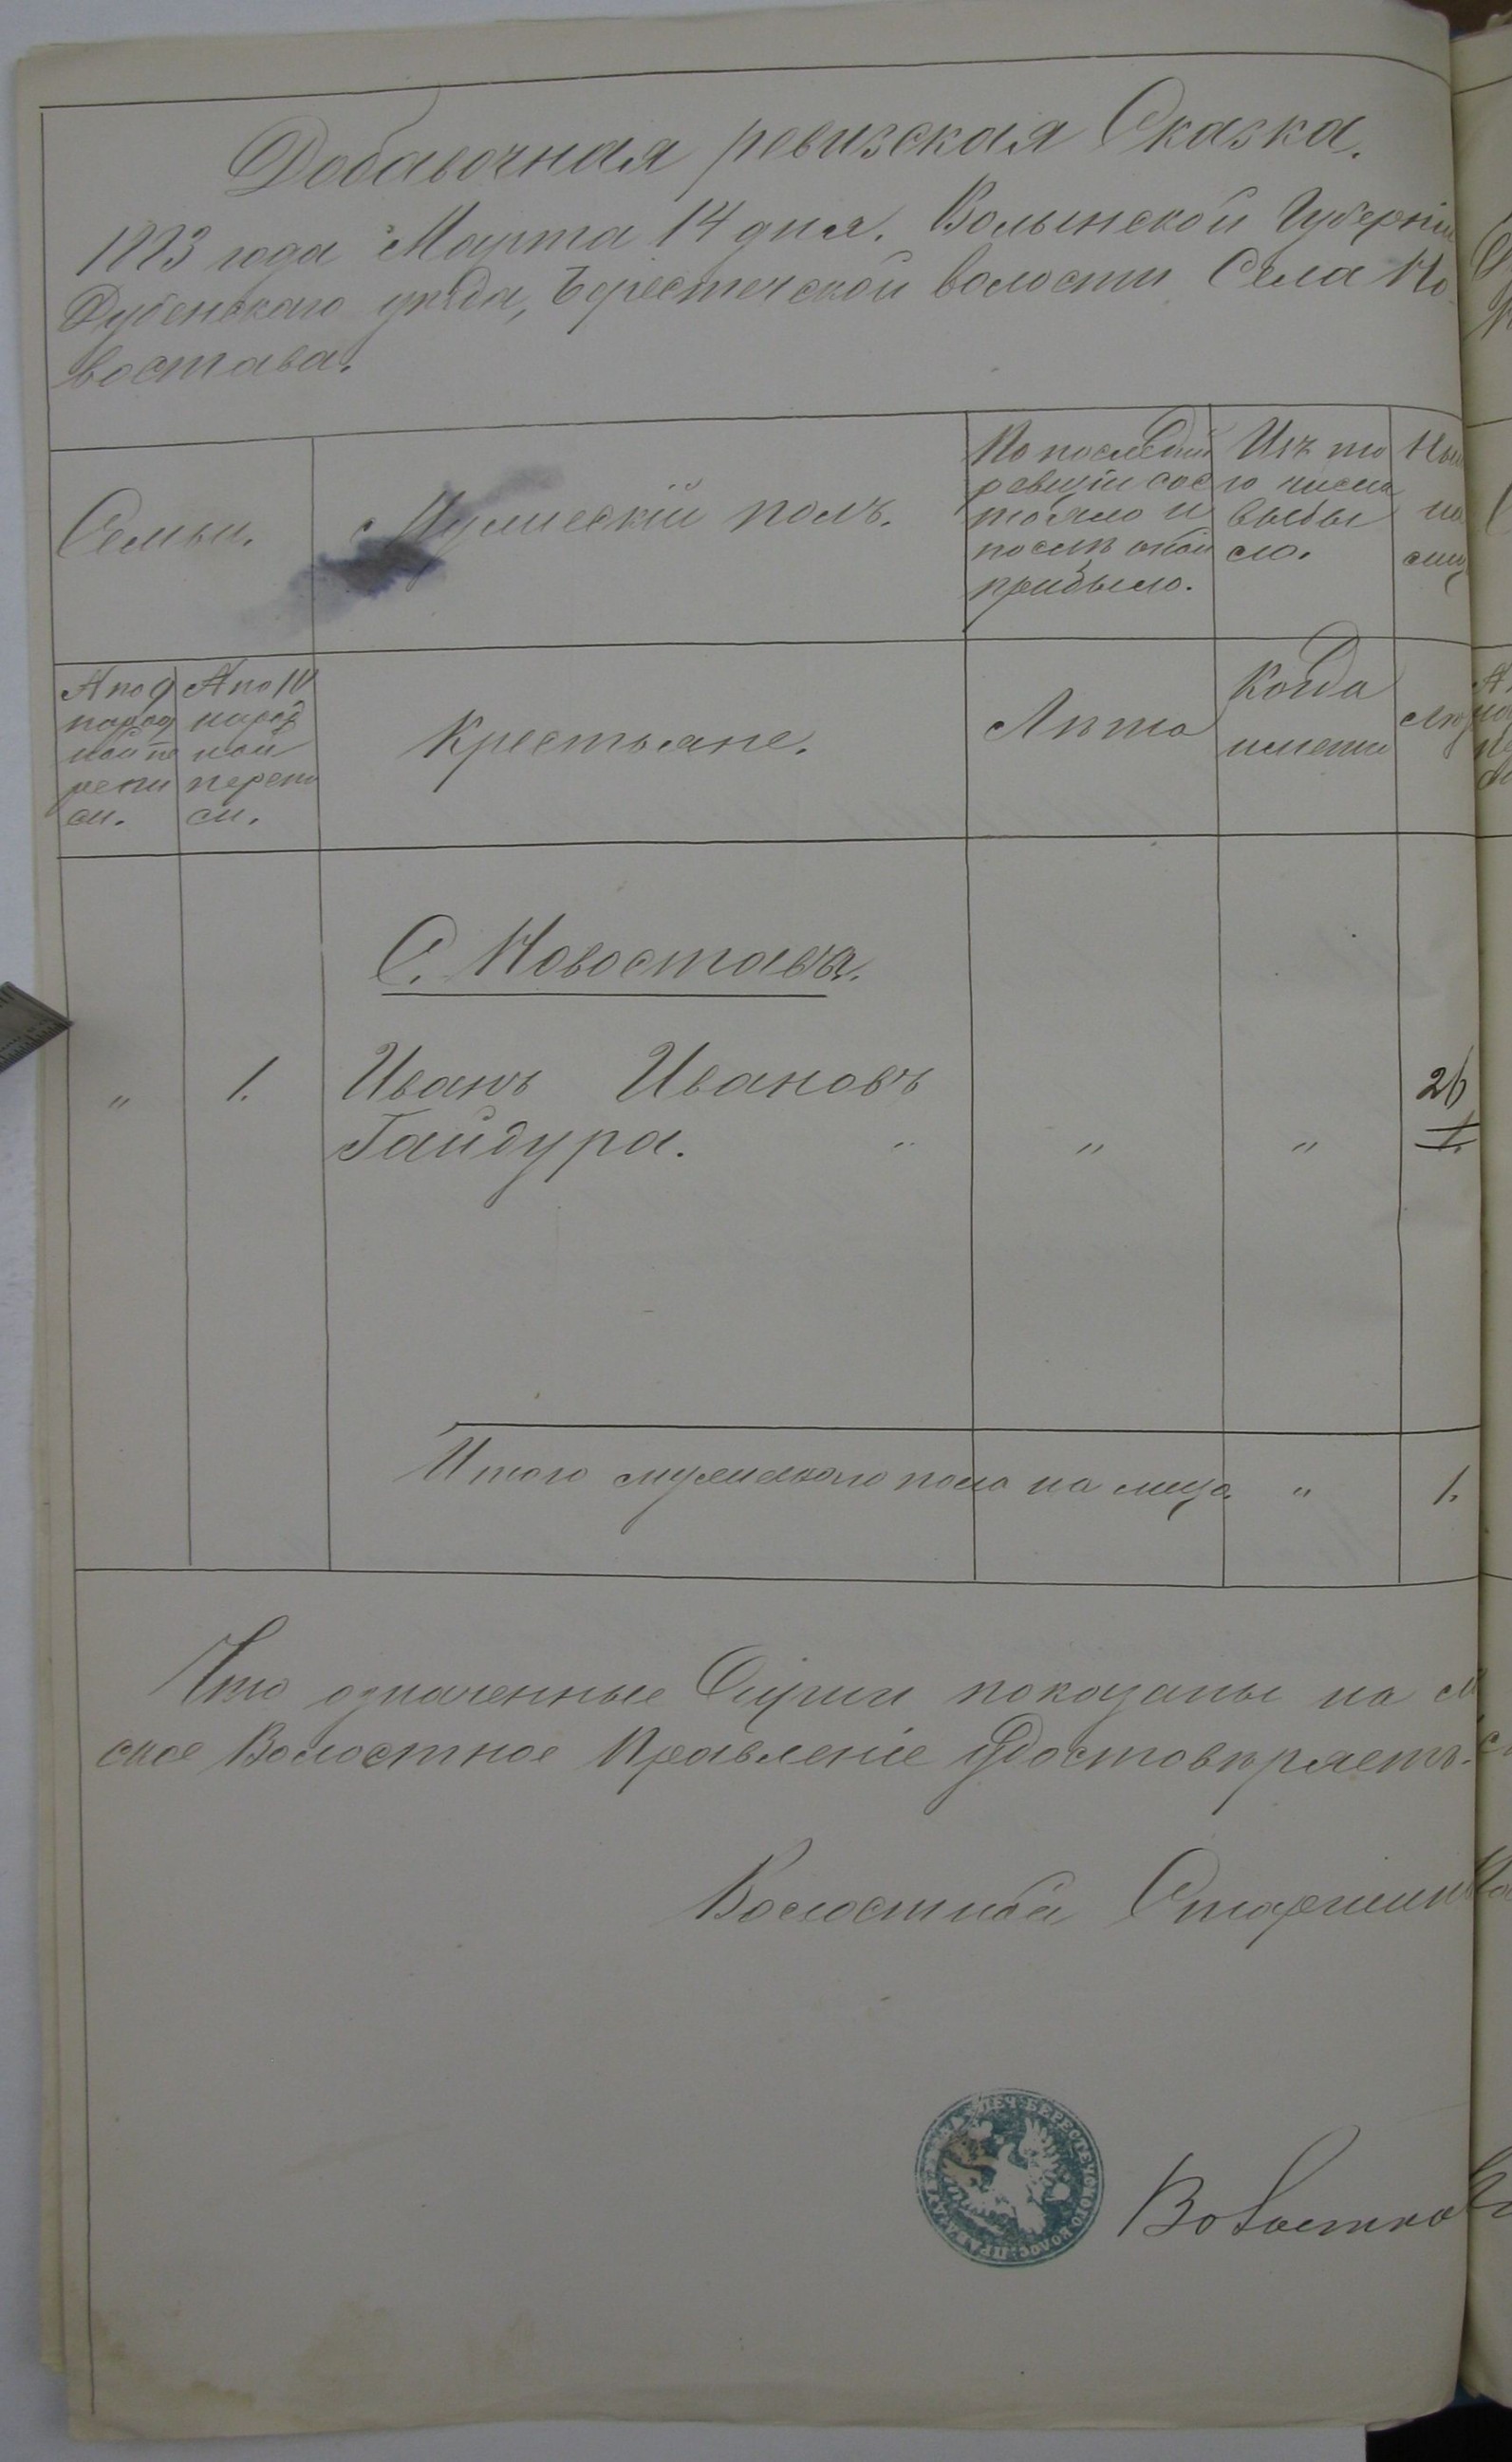 Добавочная ревизская Сказка.
1873 года Марта 14 дня. Волынской Губерніи
Дубенскаго уѣзда, Берестечской волости Села Но-
востава.
Семьи.
Мужескій полъ.
По последней
ревизіи сос
тояло и
послѣ оной
прибыло.
Изъ то
го числа
выбы
ло.
Ны
на
лиц
№ по 9
народ
ной пе
репи
си.
№ по 10
народ
ной
перепи
си.
Крестьяне.
Лѣта
Когда
именно
Лѣ
С. Новостава.
" 1. Иванъ Ивановъ 26
Гайдура. " " " 1.
Итого мужескаго пола на лицо. " 1.
Что означенные Души показаны на
ское Волостное Правленіе Удостовѣряетъ.
Волостной Старшин
ПЕЧ. БЕРЕСТЕЧСКОГО ВОЛОС. ПРАВ.
Волостно